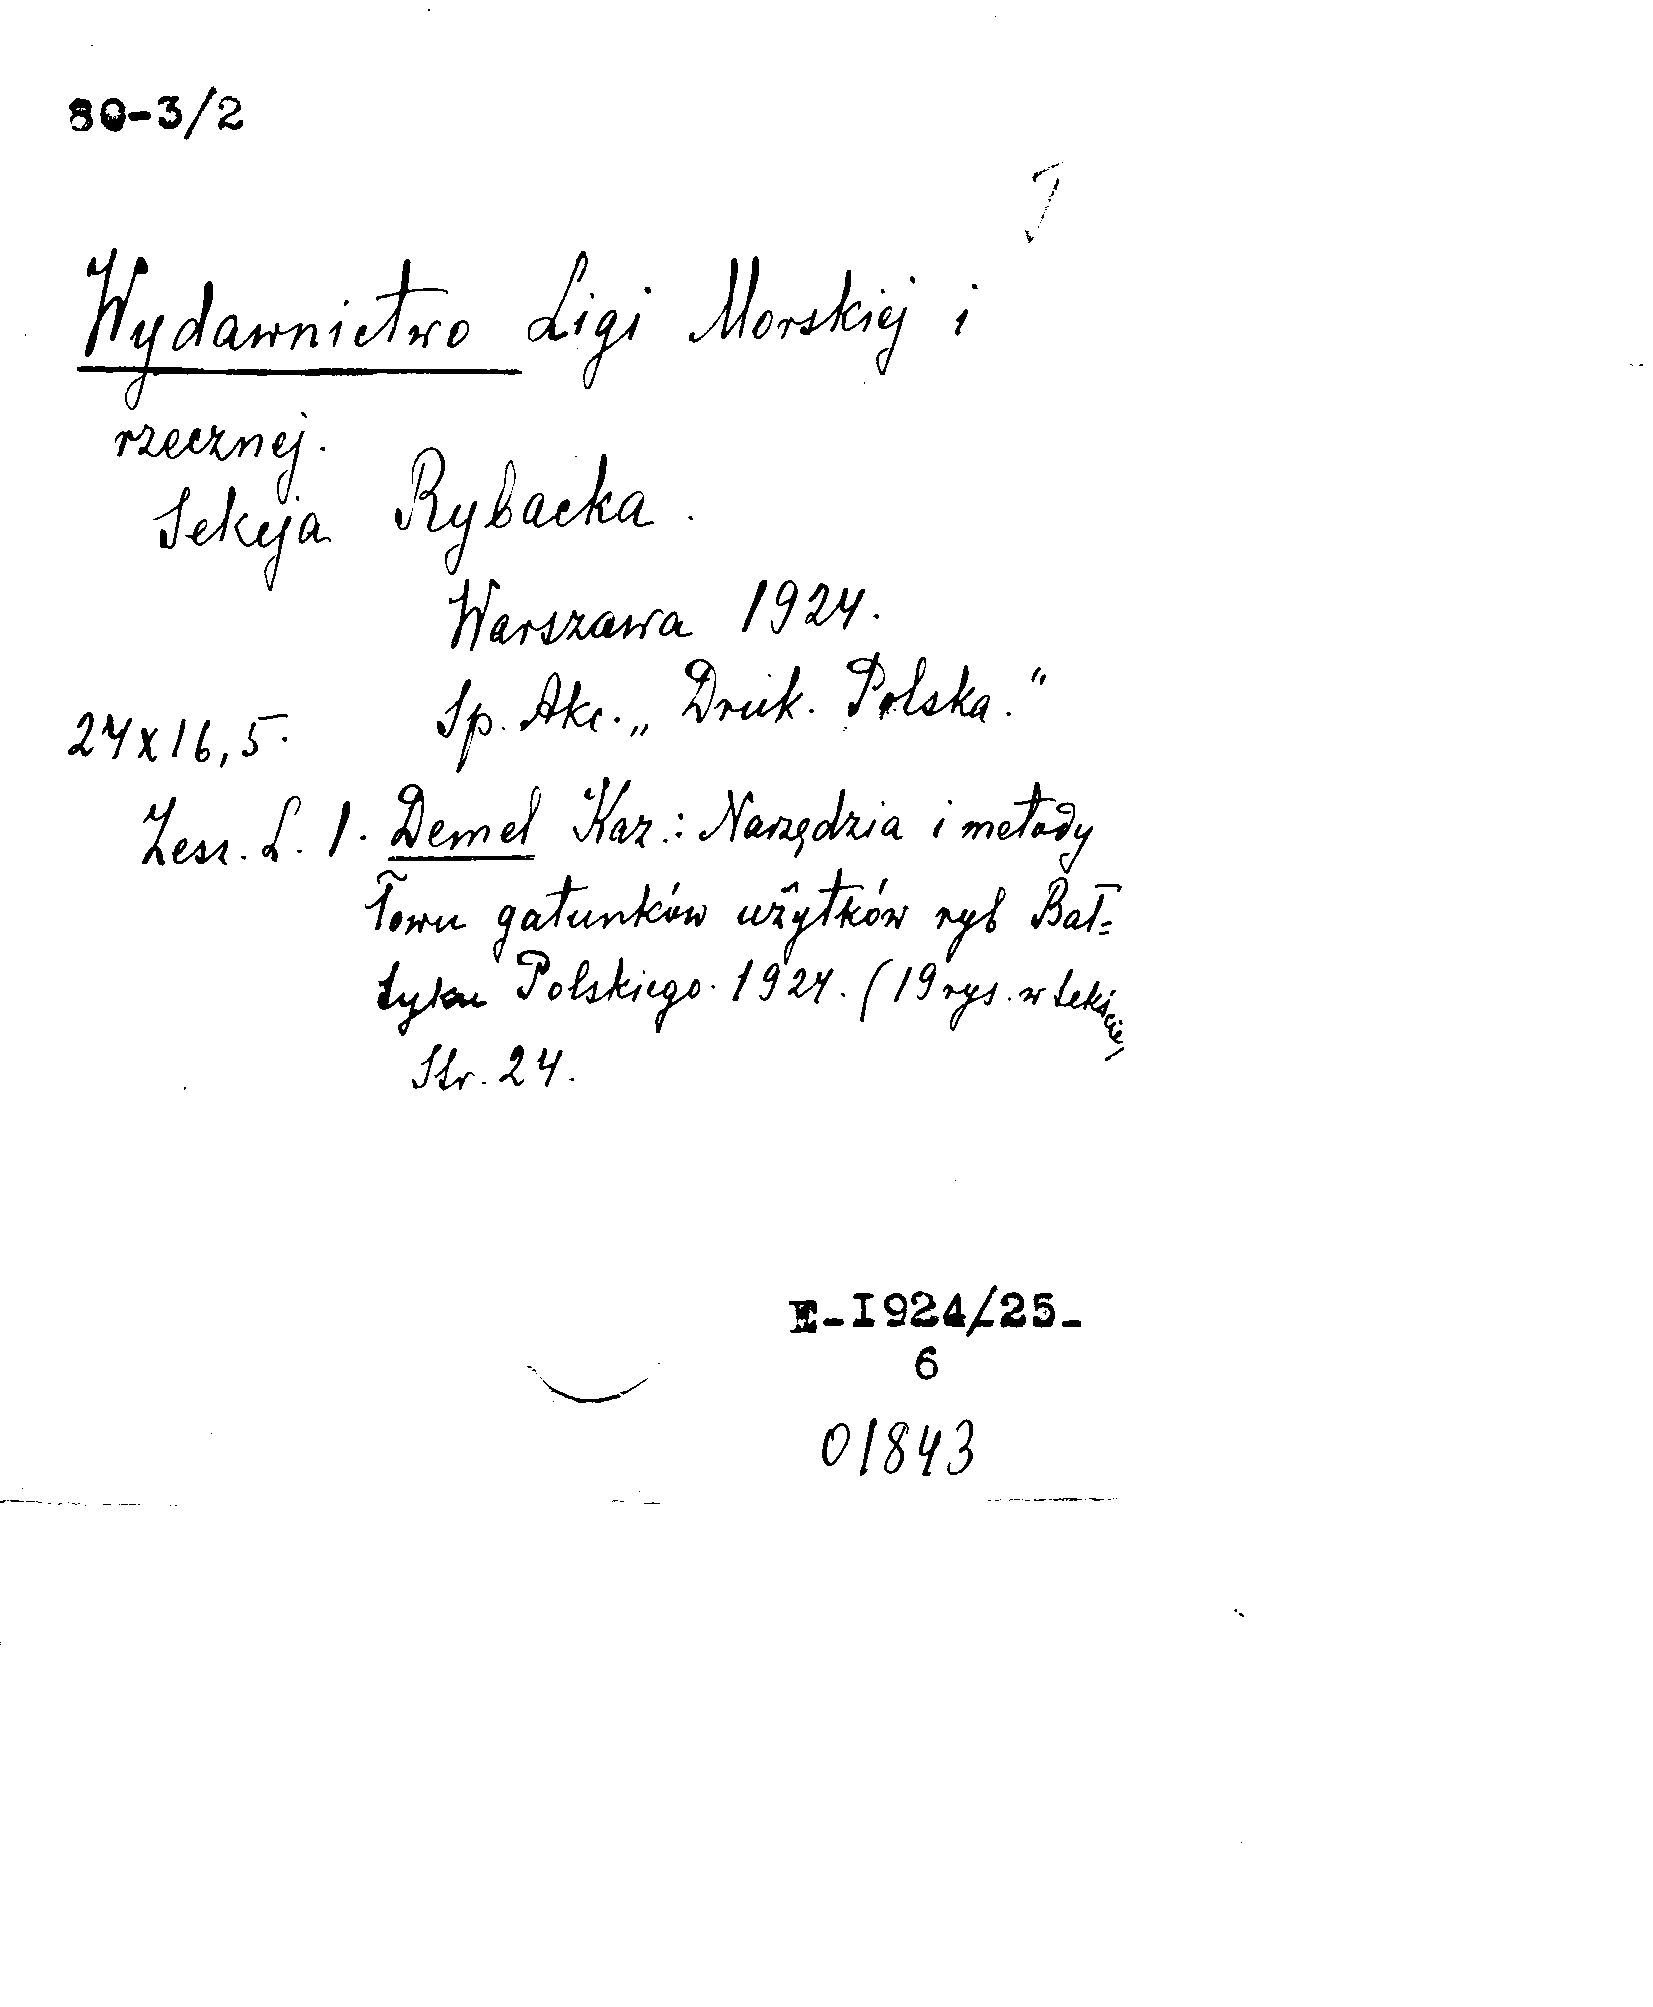 80-3/2
Wydawnictwo Ligi Morskiej i
rzecznej.
Sekcja Rybacka.
Warszawa 1924.
Sp. Akc. „Druk. Polska."
24x16,5.
Zesz. L. 1. Demel Kaz.: Narzędzia i metody
łowu gatunków użytków ryb Bał=
tyku Polskiego. 1924. (19 rys. w tekście)
Str. 24.
E-I924/25-
6
01843